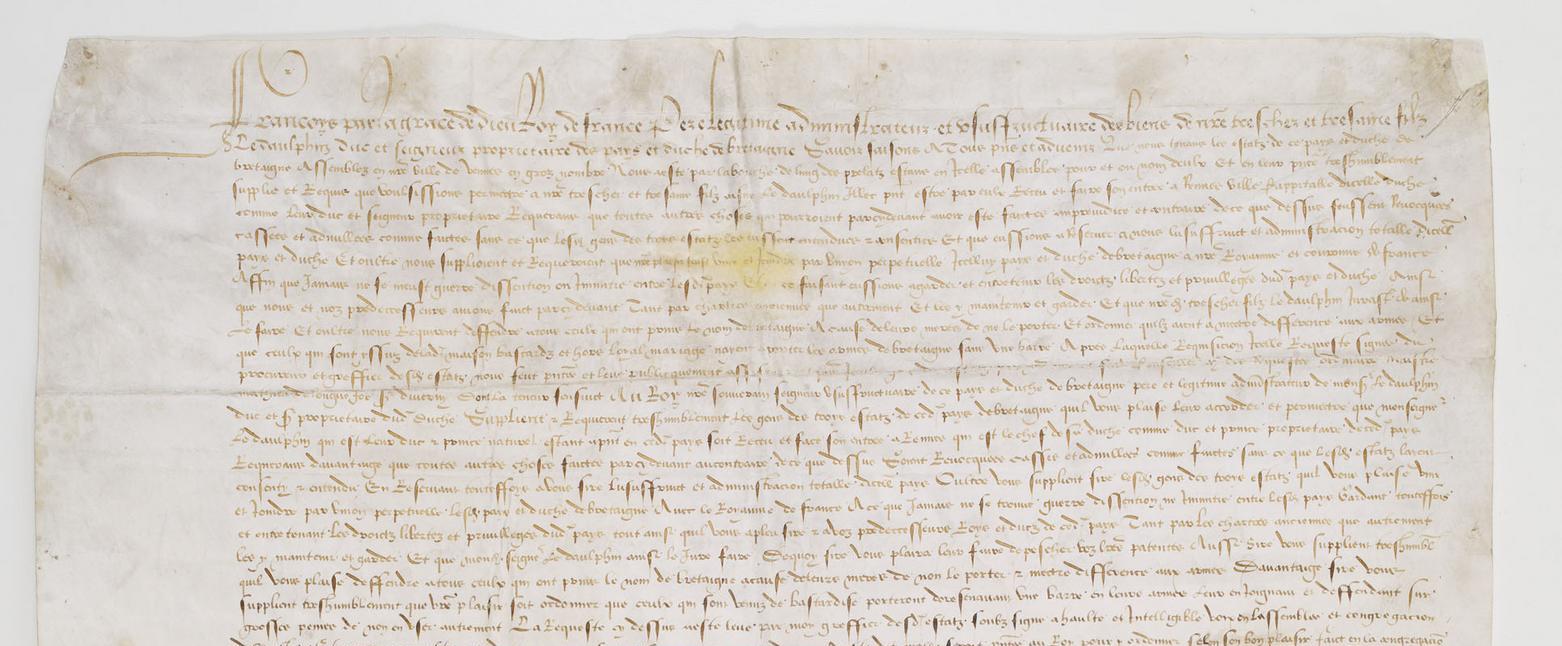 Francoys par la grace de dieu Roy de france Pere legitime administrateur et usuffructuaire des biens de nre tres cher et tresame filz
Le daulphin duc et seigneur proprietaire des pays et duche de bretaigne Savoir faisons A Tous pns et advenir Que nous tenans les estatz de ce pays et duche de
bretaigne Assemblez en nre ville de Vennes en gros nombre Nous a este par la bouche de lung des prelatz estans en icelle assemblee pour et ou nom deulx Et en leur pnce treshumblement
supplie et Requis que voulsissions permectre a nre trescher et tresame filz aisne Le daulphin illec pnt estre par eulx Receu et faire son entree a Rennes ville Cappitalle dicelle duche
comme leur duc et seigneur proprietaire Requerans que toutes autres choses qui pourroient parcydevant avoir este faictes au preiudice et contraire de ce que dessus feussent Revocquees
cassees et adnullees comme faictes sans ce que lesd gens des trois estatz les eussent entendues consenties Et que eussions a Reserver a nous lusuffruict et administracion totalle dicell
pays et duche Et oultre nous supplioient et Requeroient que unir et joindre par Union perpetuelle Icelluy pays et duche de bretaigne a nre Royaume et couronne de france
Affin que Jamais ne se meust guerre dissention ou Inimitie entre lesd pays Et ce faisant eussions a garder et entretenir les droictz libertez et privilleges dud pays et duche Ainsi
que nous et noz predecesseurs avions faict parcydevant Tant par chartres anciennes que autrement Et les y maintenir et garder Et que nred trescher filz le daulphin Jurast de ainsi
Le faire Et oultre nous Requirent deffendre a tous ceulx qui ont prins le nom de bretaigne A cause de leurs meres de ne le porter Et ordonner quilz aient a mectre difference aux armes Et
que ceulx qui sont yssuz de lad maison bastardz et hors loyal mariage naient a porter les armes de bretaigne sans une barre Apres laquelle Requisicion icelle Requeste signee du
procureur et greffier desd estatz nous feut pntee et leue publicquement
Dont la teneur sensuit Au Roy nre souverain seigneur Usuffructuaire de ce pays et duche de bretaigne pere et legitime administrateur de monsr Le daulphin
duc et sr proprietaire dud Duche Supplient Requerent treshumblement Les gens des troys estatz de ced pays de bretaigne quil vous plaise leur accorder et permectre que monseignr
Le daulphin qui est leur duc prince naturel estant apnt en ced pays soit Receu et face son entree a Rennes qui est le chef de sa duche comme duc et prince proprietaire de ced pays
Requerans davantaige que toutes autres choses faictes parcydevant au contraire de ce que dessus Soient Revocquees cassees et adnullees comme faictes sans ce que lesd estatz laient
consenty entendu En Reservant touteffoys a vous sire lusuffruict et administracion totalle dicell pays Oultre vous supplient sire lesd gens des troys estatz quil vous plaise unir
et Joindre par Union perpetuelle lesd pays et duche de bretaigne Avec le Royaume de france A ce que Jamais ne se treuve guerre dissention ne Inimitie entre lesd pays Gardant touteffois
et entretenant les droictz libertez et privilleges dud pays tout ainsi quil vous a pleu sire a voz predecesseurs Roys et ducz de ced pays Tant par les chartres anciennes que autrement
les y maintenir et garder Et que monseignr Le daulphin ainsi le Jure faire Dequoy sire vous plaira leur faire depescher voz lres patentes Aussi Sire vous supplient treshumbl
quil vous plaise deffendre a tous ceulx qui ont prins le nom de bretaigne a cause de leurs meres de non le porter mectre difference aux armes Davantaige sire vous
supplient treshumblement que vre plaisir soit ordonner que ceulx qui sont venuz de bastardise porteront doresenavant une barre en leurs armes leur enjoignant et deffendant sur
grosses peines de non en user autrement La Requeste cy dessus a este leue par moy greffier desd estatz soubz signe a haulte et Intelligible voix en lassemblee et congregacion
au Roy pour ordonner selon son bon plaisir faict en la congregacion